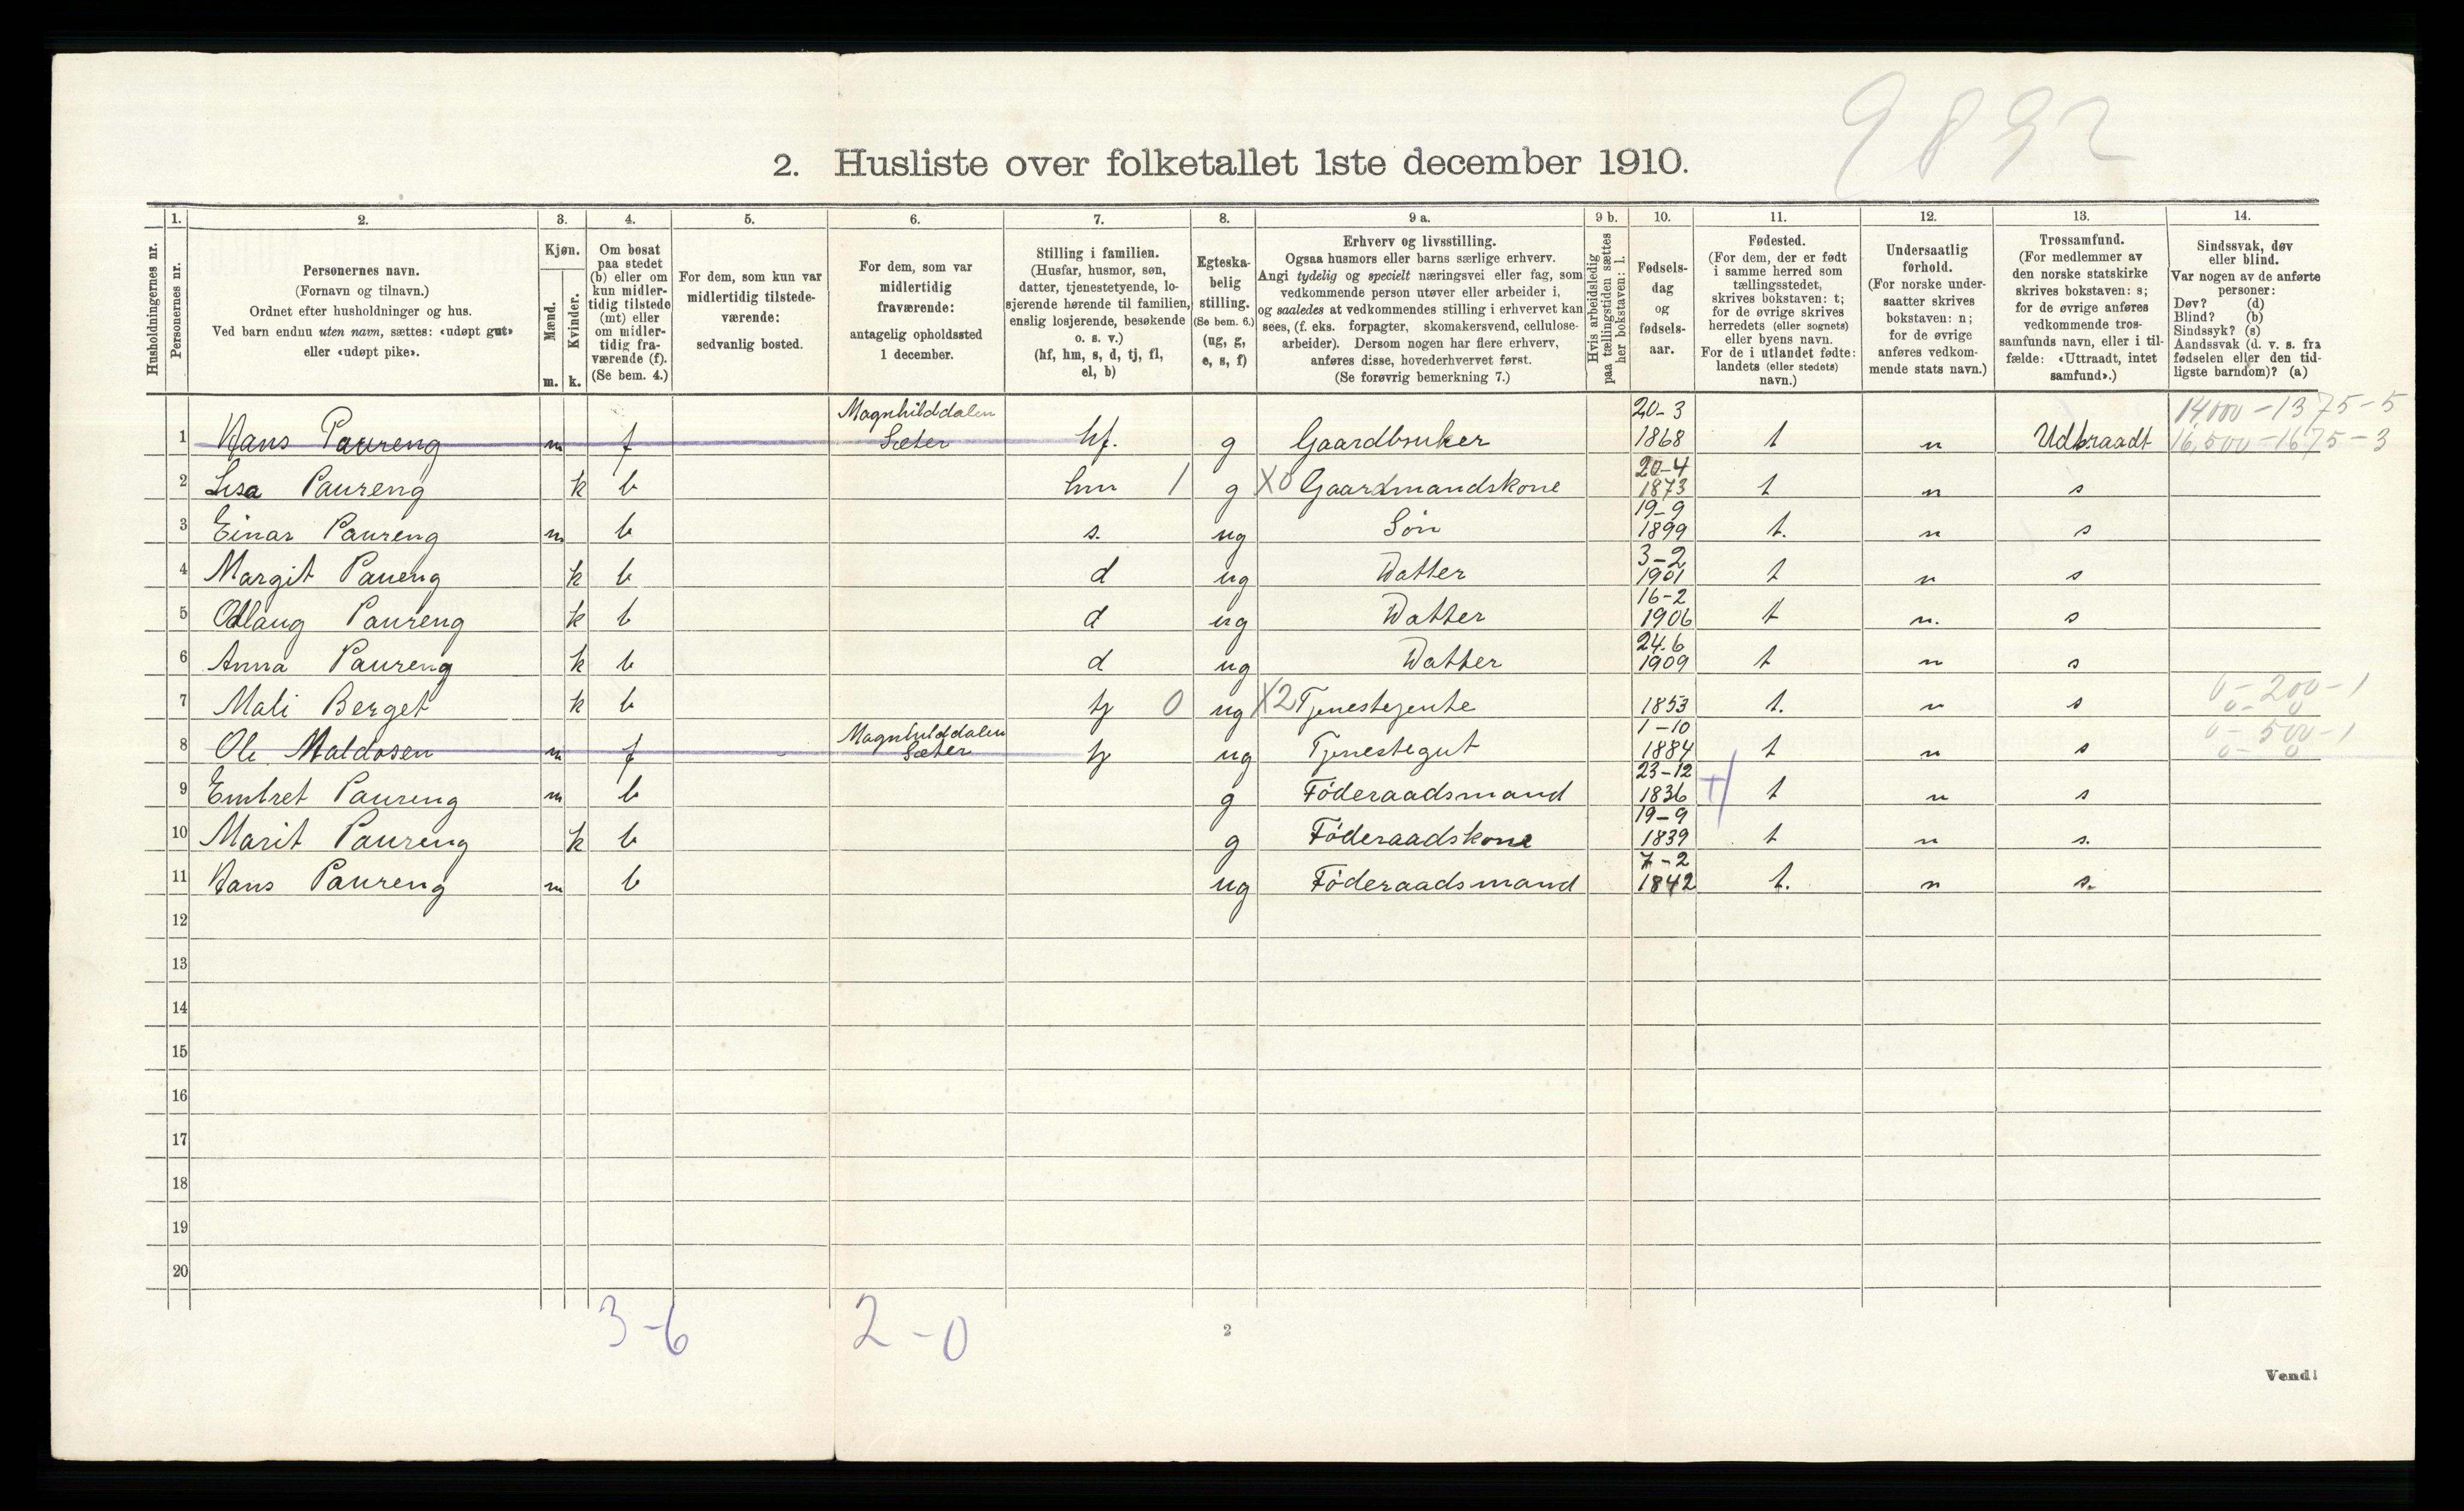 9892
2. Husliste over folketallet 1ste december 1910.
Husholdningernes nr.
1.
Personernes nr.
2.
Personernes navn.
(Fornavn og tilnavn.)
Ordnet efter husholdninger og hus.
Ved barn endnu uten navn, sættes: «udøpt gut»
eller «udøpt pike».
3.
Kjøn.
Mænd.
Kvinder.
m. k.
4.
Om bosat
paa stedet
(b) eller om
kun midler-
tidig tilstede
(mt) eller
om midler-
tidig fra-
værende (f).
(Se bem. 4.)
5.
For dem, som kun var
midlertidig tilstede-
værende:
sedvanlig bosted.
6.
For dem, som var
midlertidig
fraværende:
antagelig opholdssted
1 december.
7.
Stilling i familien.
(Husfar, husmor, søn,
datter, tjenestetyende, lo-
sjerende hørende til familien,
enslig losjerende, besøkende
o. s. v.)
(hf, hm, s, d, tj, fl,
el, b)
8.
Egteska-
belig
stilling.
(Se bem. 6.)
(ug, g,
e, s, f)
9 a.
Erhverv og livsstilling.
Ogsaa husmors eller barns særlige erhverv.
Angi tydelig og specielt næringsvei eller fag, som
vedkommende person utøver eller arbeider i,
og saaledes at vedkommendes stilling i erhvervet kan
sees, (f. eks. forpagter, skomakersvend, cellulose-
arbeider). Dersom nogen har flere erhverv,
anføres disse, hovederhvervet først.
(Se forøvrig bemerkning 7.)
9 b.
Hvis arbeidsledig
paa tællingstiden sættes
her bokstaven: l.
10.
Fødsels-
dag
og
fødsels-
aar.
11.
Fødested.
(For dem, der er født
i samme herred som
tællingsstedet,
skrives bokstaven: t;
for de øvrige skrives
herredets (eller sognets)
eller byens navn.
For de i utlandet fødte:
landets (eller stedets)
navn.)
12.
Undersaatlig
forhold.
(For norske under-
saatter skrives
bokstaven: n;
for de øvrige
anføres vedkom-
mende stats navn.)
13.
Trossamfund.
(For medlemmer av
den norske statskirke
skrives bokstaven: s;
for de øvrige anføres
vedkommende tros-
samfunds navn, eller i til-
fælde: «Uttraadt, intet
samfund».)
14.
Sindssvak, døv
eller blind.
Var nogen av de anførte
personer:
Døv? (d)
Blind? (b)
Sindssyk? (s)
Aandssvak (d. v. s. fra
fødselen eller den tid-
ligste barndom)? (a)
1 Hans Paureng m f Magnhilddalen Sæter hf. g Gaardbruker 20-3 1868 t n Udtraadt 14,000-1375-5 16,500-1675-3
2 Lisa Paureng k b hm 1 g X0 Gaardmandskone 20-4 1873 t n s
3 Einar Paureng m b s. ug Søn 19-9 1899 t. n s
4 Margit Paueng k b d ug Datter 3-2 1901 t n s
5 Odlaug Paureng k b d ug Datter 16-2 1906 t n. s
6 Anna Paureng k b d ug Datter 24.6 1909 t n s
7 Mali Berget k b tj 0 ug X2 Tjenestejente 1853 t. n s 0-200-1 0-0
8 Ole Maldosen m f Magnhilddalen Sæter tj ug Tjenestegut 1-10 1884 t n s 0-500-1 0-0
9 Embret Paureng m b g Föderaadsmand 23-12 1836 t n s
10 Marit Paureng k b g Föderaadskone 19-9 1839 t n s.
11 Hans Paureng m b ug Föderaadsmand 7-2 1842 t. n s.
12
13
14
15
16
17
18
19
20
3-6 2-0
2
Vend!